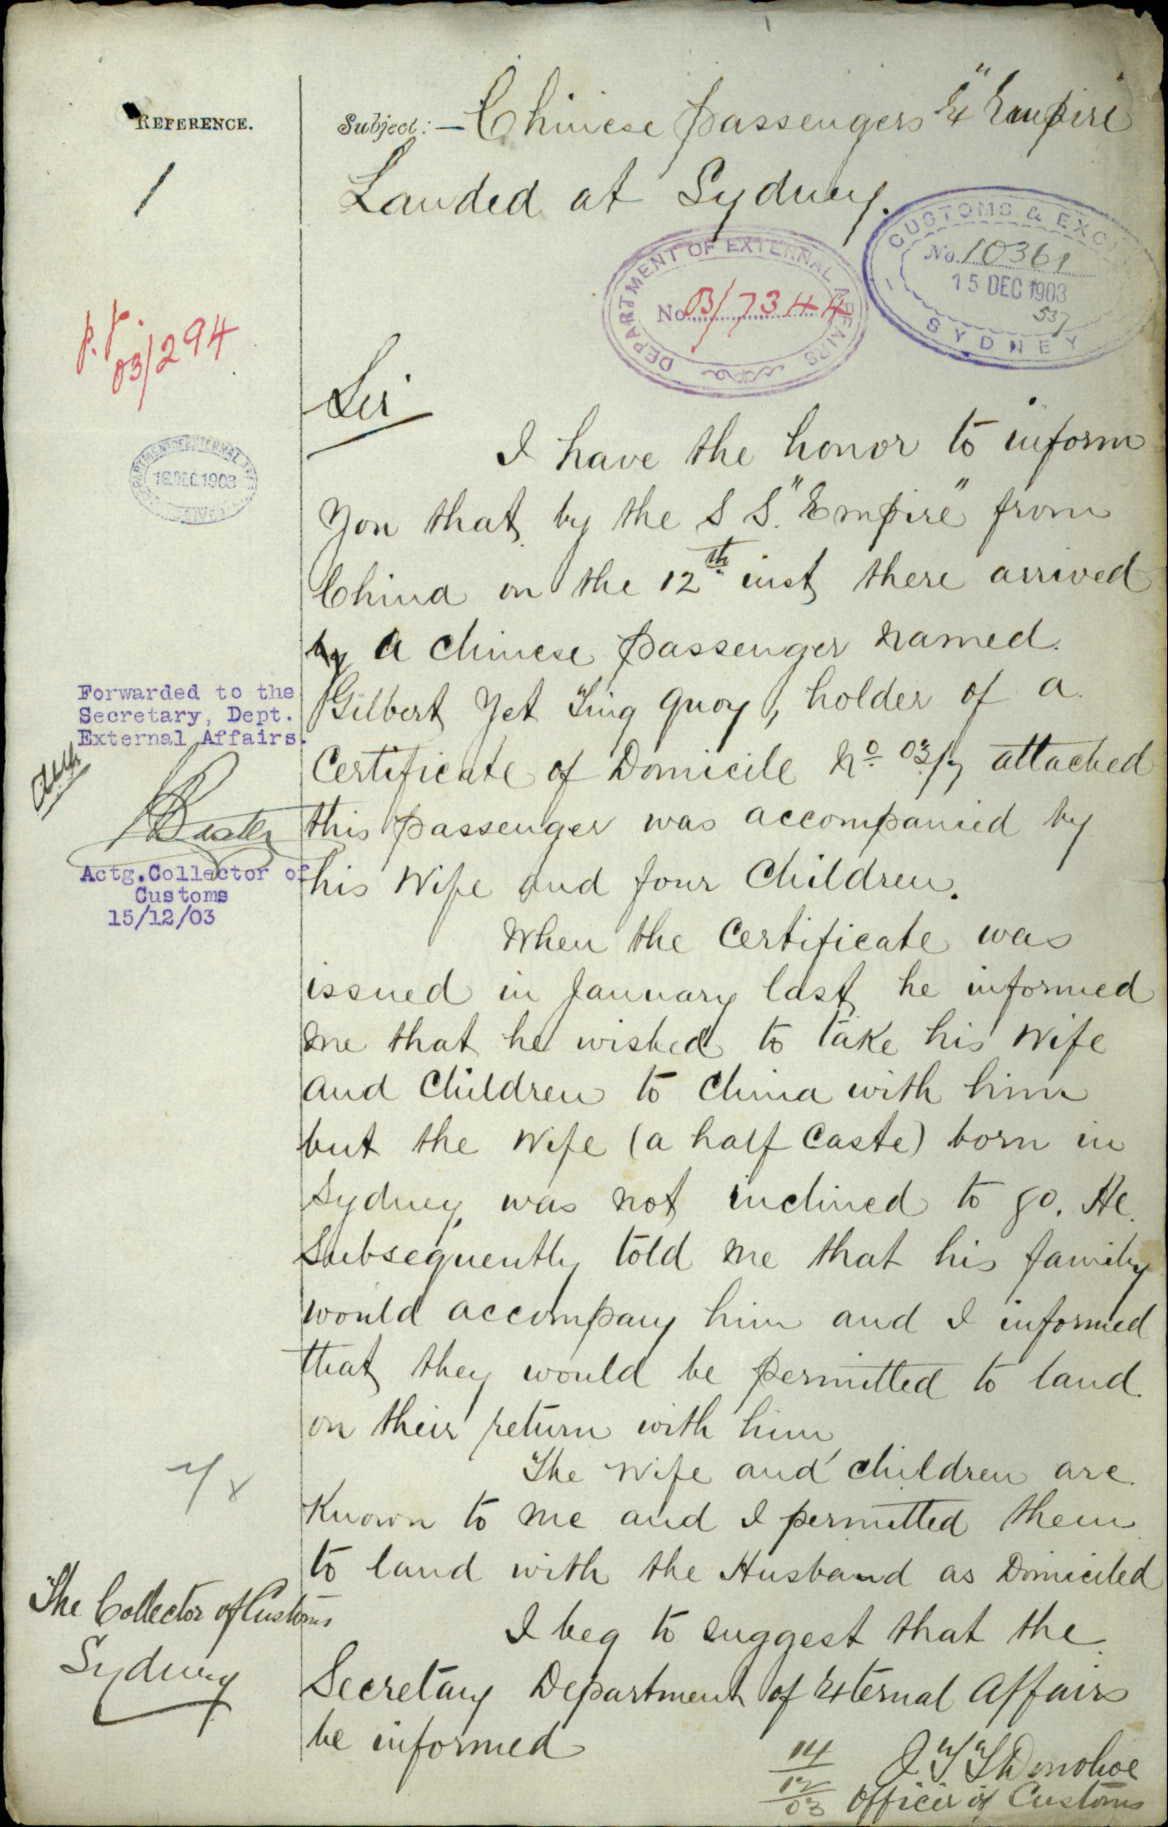 REFERENCE.
1
Subject:— Chinese passengers Ex "Empire"
Landed at Sydney.
CUSTOMS & EXCI
No. 10361
15 DEC 1903
537
SYDNEY
DEPARTMENT OF EXTERNAL AFFAIRS
No. 03/7344
p.p.
03/294
16 DEC 1903
Sir
I have the honor to inform
you that by the S S. "Empire" from
China on the 12th inst there arrived
by a chinese passenger named
Gilbert Yet Ting Quoy, holder of a
Certificate of Domicile No. 03/7 attached
this passenger was accompanied by
his Wife and four Children.
When the Certificate was
issued in January last, he informed
me that he wished to take his Wife
and Children to China with him
but the Wife (a half Caste) born in
Sydney, was not inclined to go. He
Subsequently told me that his family
would accompany him and I informed
that they would be permitted to land
on their return with him
The Wife and children are
Known to me and I permitted them
to land with the Husband as Domiciled
I beg to suggest that the
Secretary Department of External Affairs
be informed
14
12
03
J. T. T. Donohoe
Officer of Customs
Forwarded to the
Secretary, Dept.
External Affairs.
Actg. Collector of
Customs
15/12/03
The Collector of Customs
Sydney